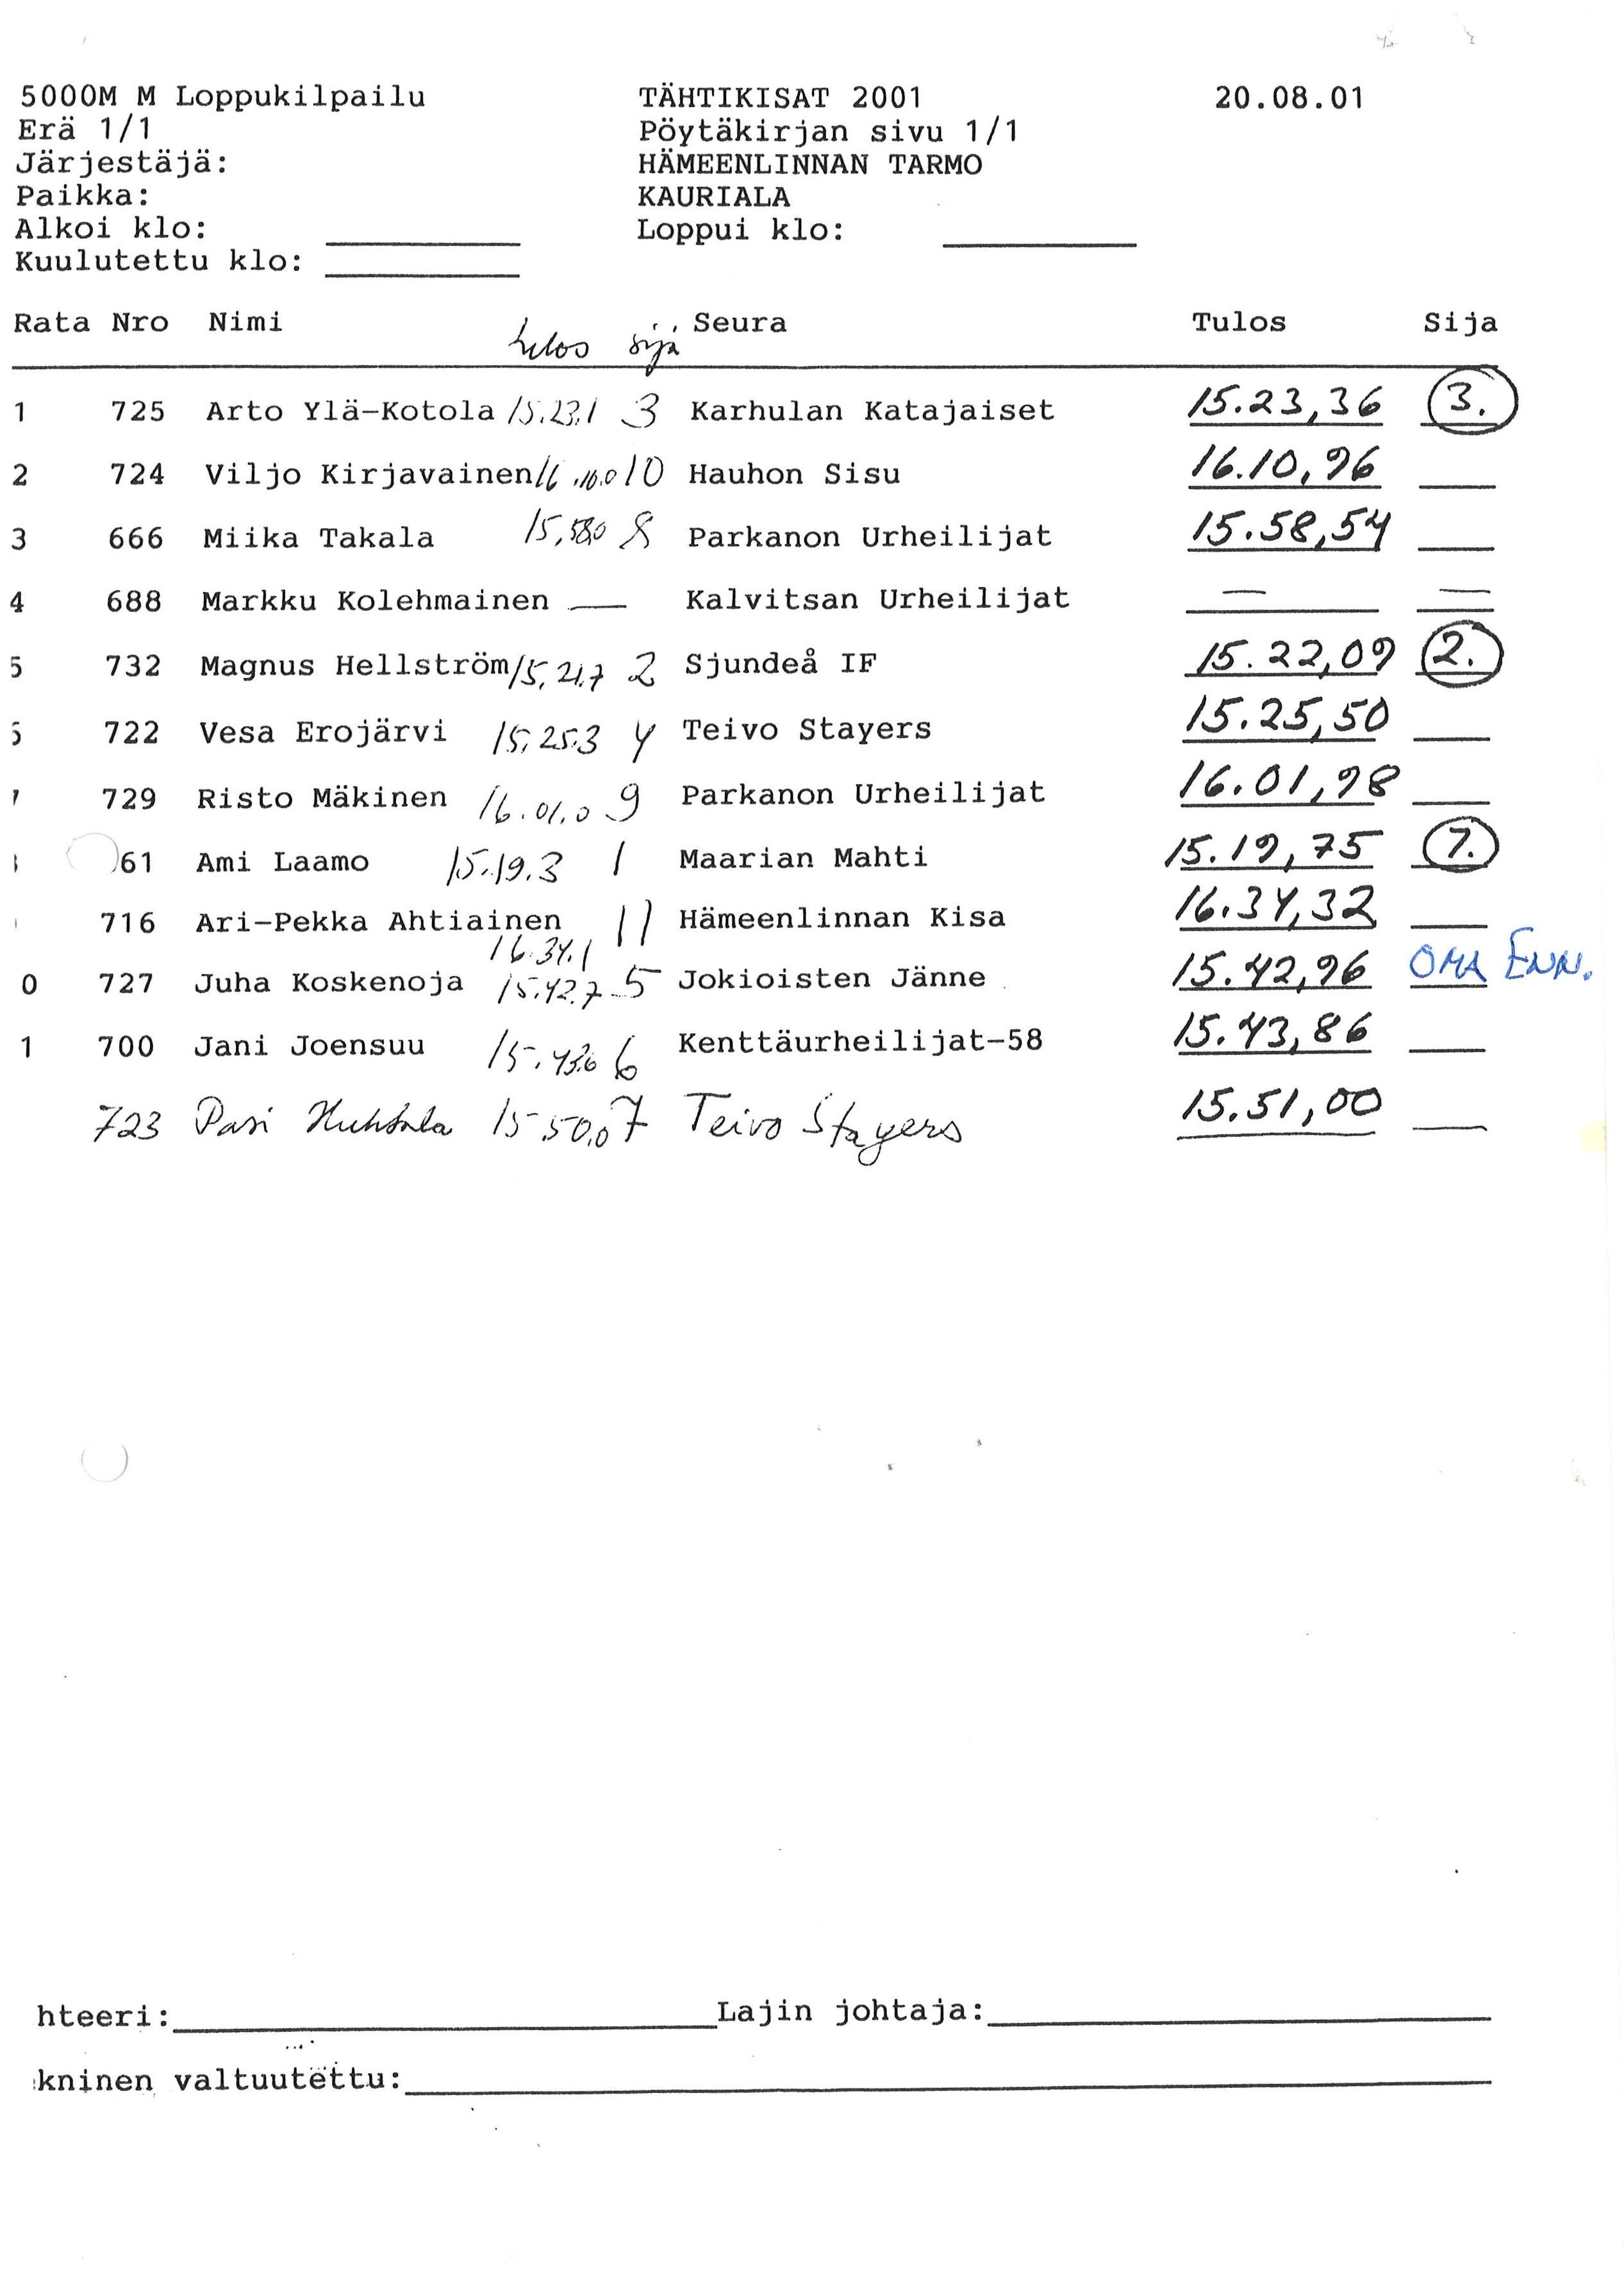 5000M M Loppukilpailu TÄHTIKISAT 2001 20.08.01
Erä 1/1 Pöytäkirjan sivu 1/1
Järjestäjä: HÄMEENLINNAN TARMO
Paikka: KAURIALA
Alkoi klo: Loppui klo:
Kuulutettu klo:
Rata Nro Nimi tulos sija Seura Tulos Sija
1 725 Arto Ylä-Kotola 15.23.1 3 Karhulan Katajaiset 15.23,36 3.
2 724 Viljo Kirjavainen 16.10.0 10 Hauhon Sisu 16.10,96
3 666 Miika Takala 15.58,0 8 Parkanon Urheilijat 15.58,54
4 688 Markku Kolehmainen — Kalvitsan Urheilijat — —
5 732 Magnus Hellström 15.21.7 2 Sjundeå IF 15.22,09 2.
722 Vesa Erojärvi 15.25.3 4 Teivo Stayers 15.25,50
729 Risto Mäkinen 16.01.0 9 Parkanon Urheilijat 16.01,98
61 Ami Laamo 15.19.3 1 Maarian Mahti 15.19,75 1.
716 Ari-Pekka Ahtiainen 11 Hämeenlinnan Kisa 16.34,32
16.34.1
0 727 Juha Koskenoja 15.42.7 5 Jokioisten Jänne 15.42,96 OMA ENN.
1 700 Jani Joensuu 15.43.6 6 Kenttäurheilijat-58 15.43,86
723 Pasi Huhtala 15.50.0 7 Teivo Stayers 15.51,00
hteeri: Lajin johtaja:
kninen valtuutettu: